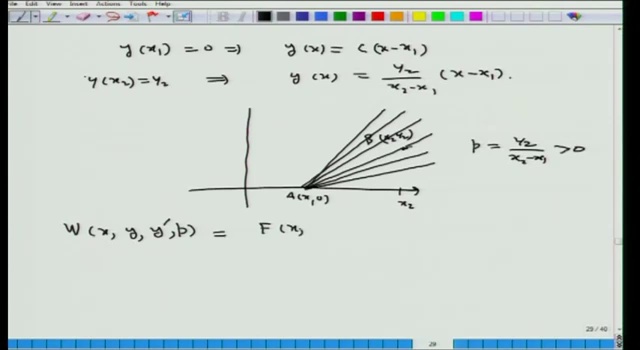 File Edit View Insert Actions Tools Help
y(x₁) = 0 ⇒ y(x) = C(x-x₁)
y(x₂) = y₂ ⇒ y(x) = y₂/(x₂-x₁) (x-x₁).
B(x₂,y₂)
p = y₂/(x₂-x₁) > 0
A(x₁,0)
x₂
W(x, y, y′, p) = F(x,
29 / 40
29